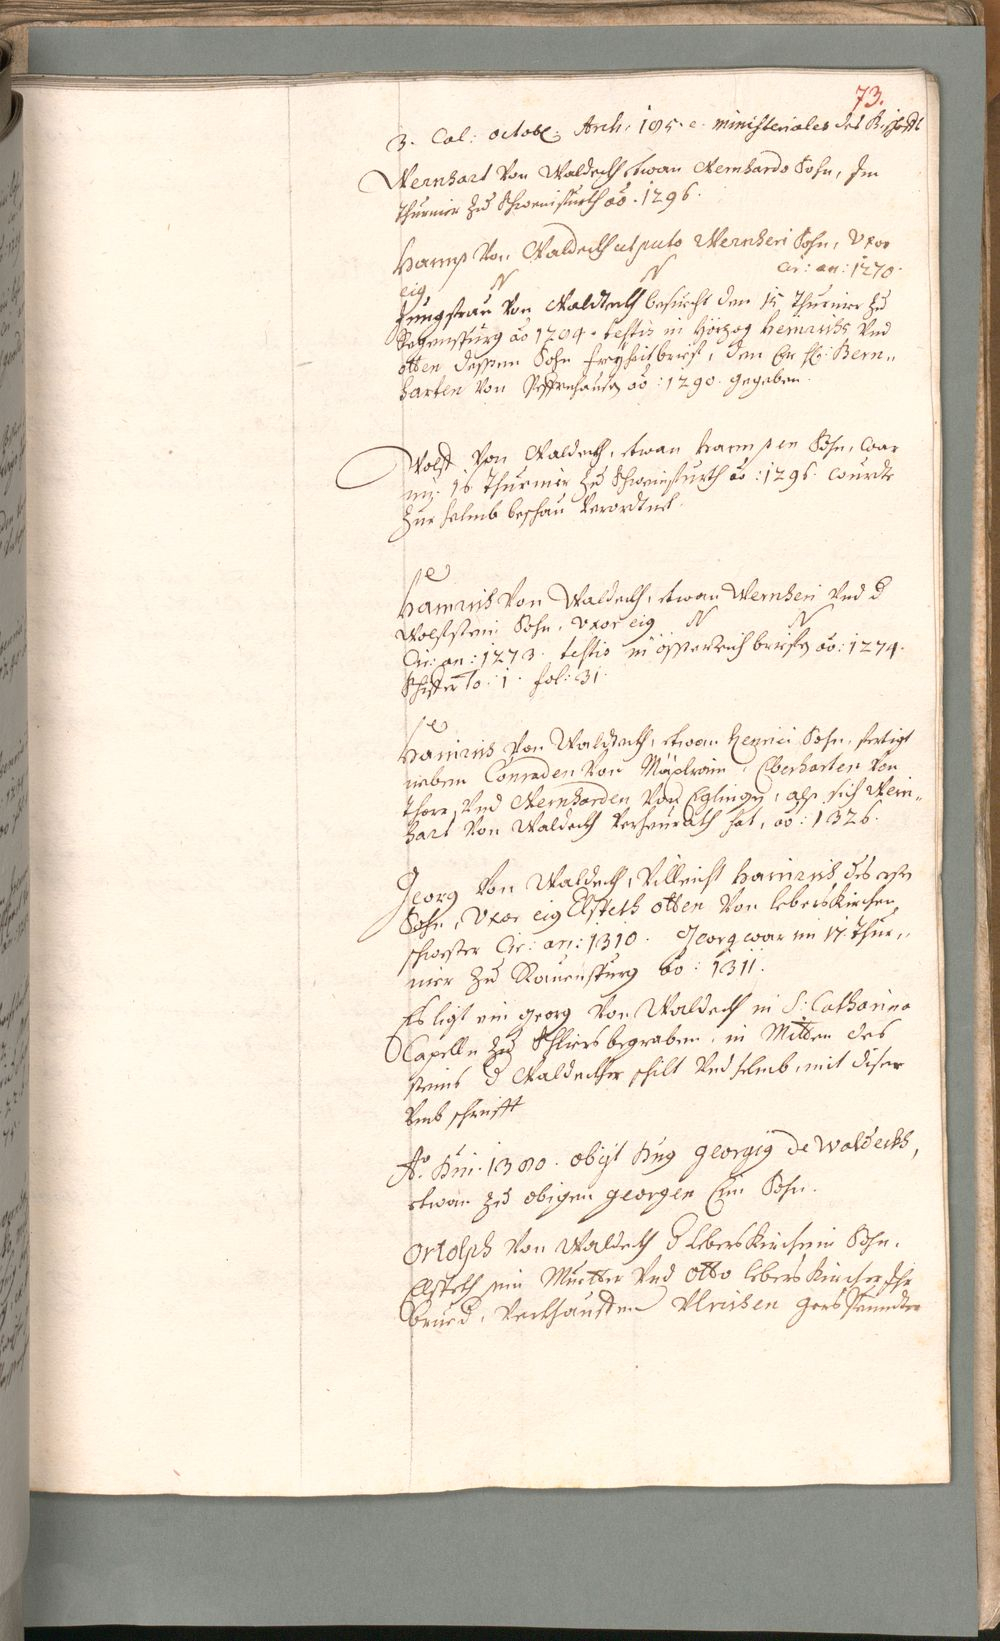 73.
3. Cal: octob: Arch: 185. e. ministeriales des B:
Wernhart Von Waldeckh etwan Wernhardo Sohn, Im
Thurnier zu Schweinfurth ao. 1296.
Hamp Von Waldeckh ut puto Wernheri Sohn, Vxor
eig N N Cir: an: 1270.
Jungfrau Von Waldeckh besucht den 15 Thurnier zu
Regenspurg ao 1284. testis in Hörzog Heinrichs Vnd
otten dessen Sohn freyheitbrief, den Er H: Bern„
harten Von ao: 1290. gegeben.
Wolff Von Waldeckh, etwan Hampen Sohn, war
im 16 Thurnier zu Schweinfurth ao: 1296. wurdte
zur helmb beschau Verordtnet.
Hainrich Von Waldeckh, etwan Wernheri Vnd d
Wolfstein Sohn. Vxor eig N N
Cir: an: 1273. testis in össterreich brieffen ao: 1274.
To: 1. fol: 31.
Hainrich Von Waldeckh, etwan Henrici Sohn, fertigt
neben Conraden Von Mäxlrain, Eberharten Von
Thorr, Vnd Wernharden Von Eglingen, als sich Wern„
hart Von Waldeckh Verheurath hat, ao: 1326.
Georg Von Waldeckh, Villeicht Hainrich des
Sohn, Vxor eig Elspeth otten Von leberskirchen
schwester Cir: an: 1310. Georg war im 17 Thur„
nier zu Rauenspurg ao: 1311.
Es ligt ein georg Von Waldeckh in S: Catharina
Capelln zu Schliers begraben, in Mitten des
steins d Waldeckher schilt Vnd helmb, mit diser
Vmbschrifft
Ao. Dni. 1380. obijt Dng georgig de Waldeckh,
etwan zu obigen georgen Ein Sohn.
Ortolph Von Waldeckh d leberskircherin Sohn.
Elspeth sein Muetter Vnd otto leberskircher Ihr
brued. Verkhaufften Vlrichen